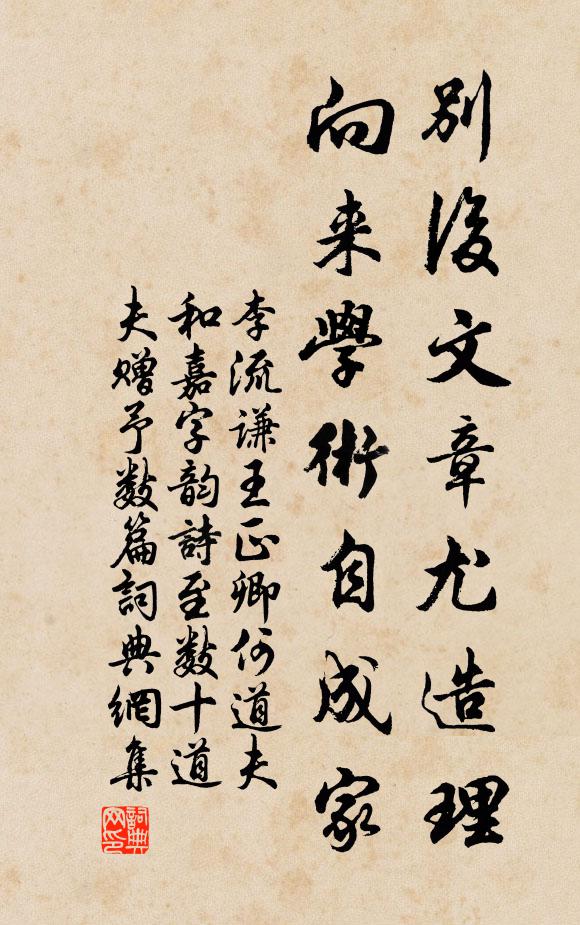 別後文章尤造理
向来學術自成家
李流谦王正卿何道夫
和嘉字韵詩至数十道
夫赠予数篇詞典網集
詞典网印